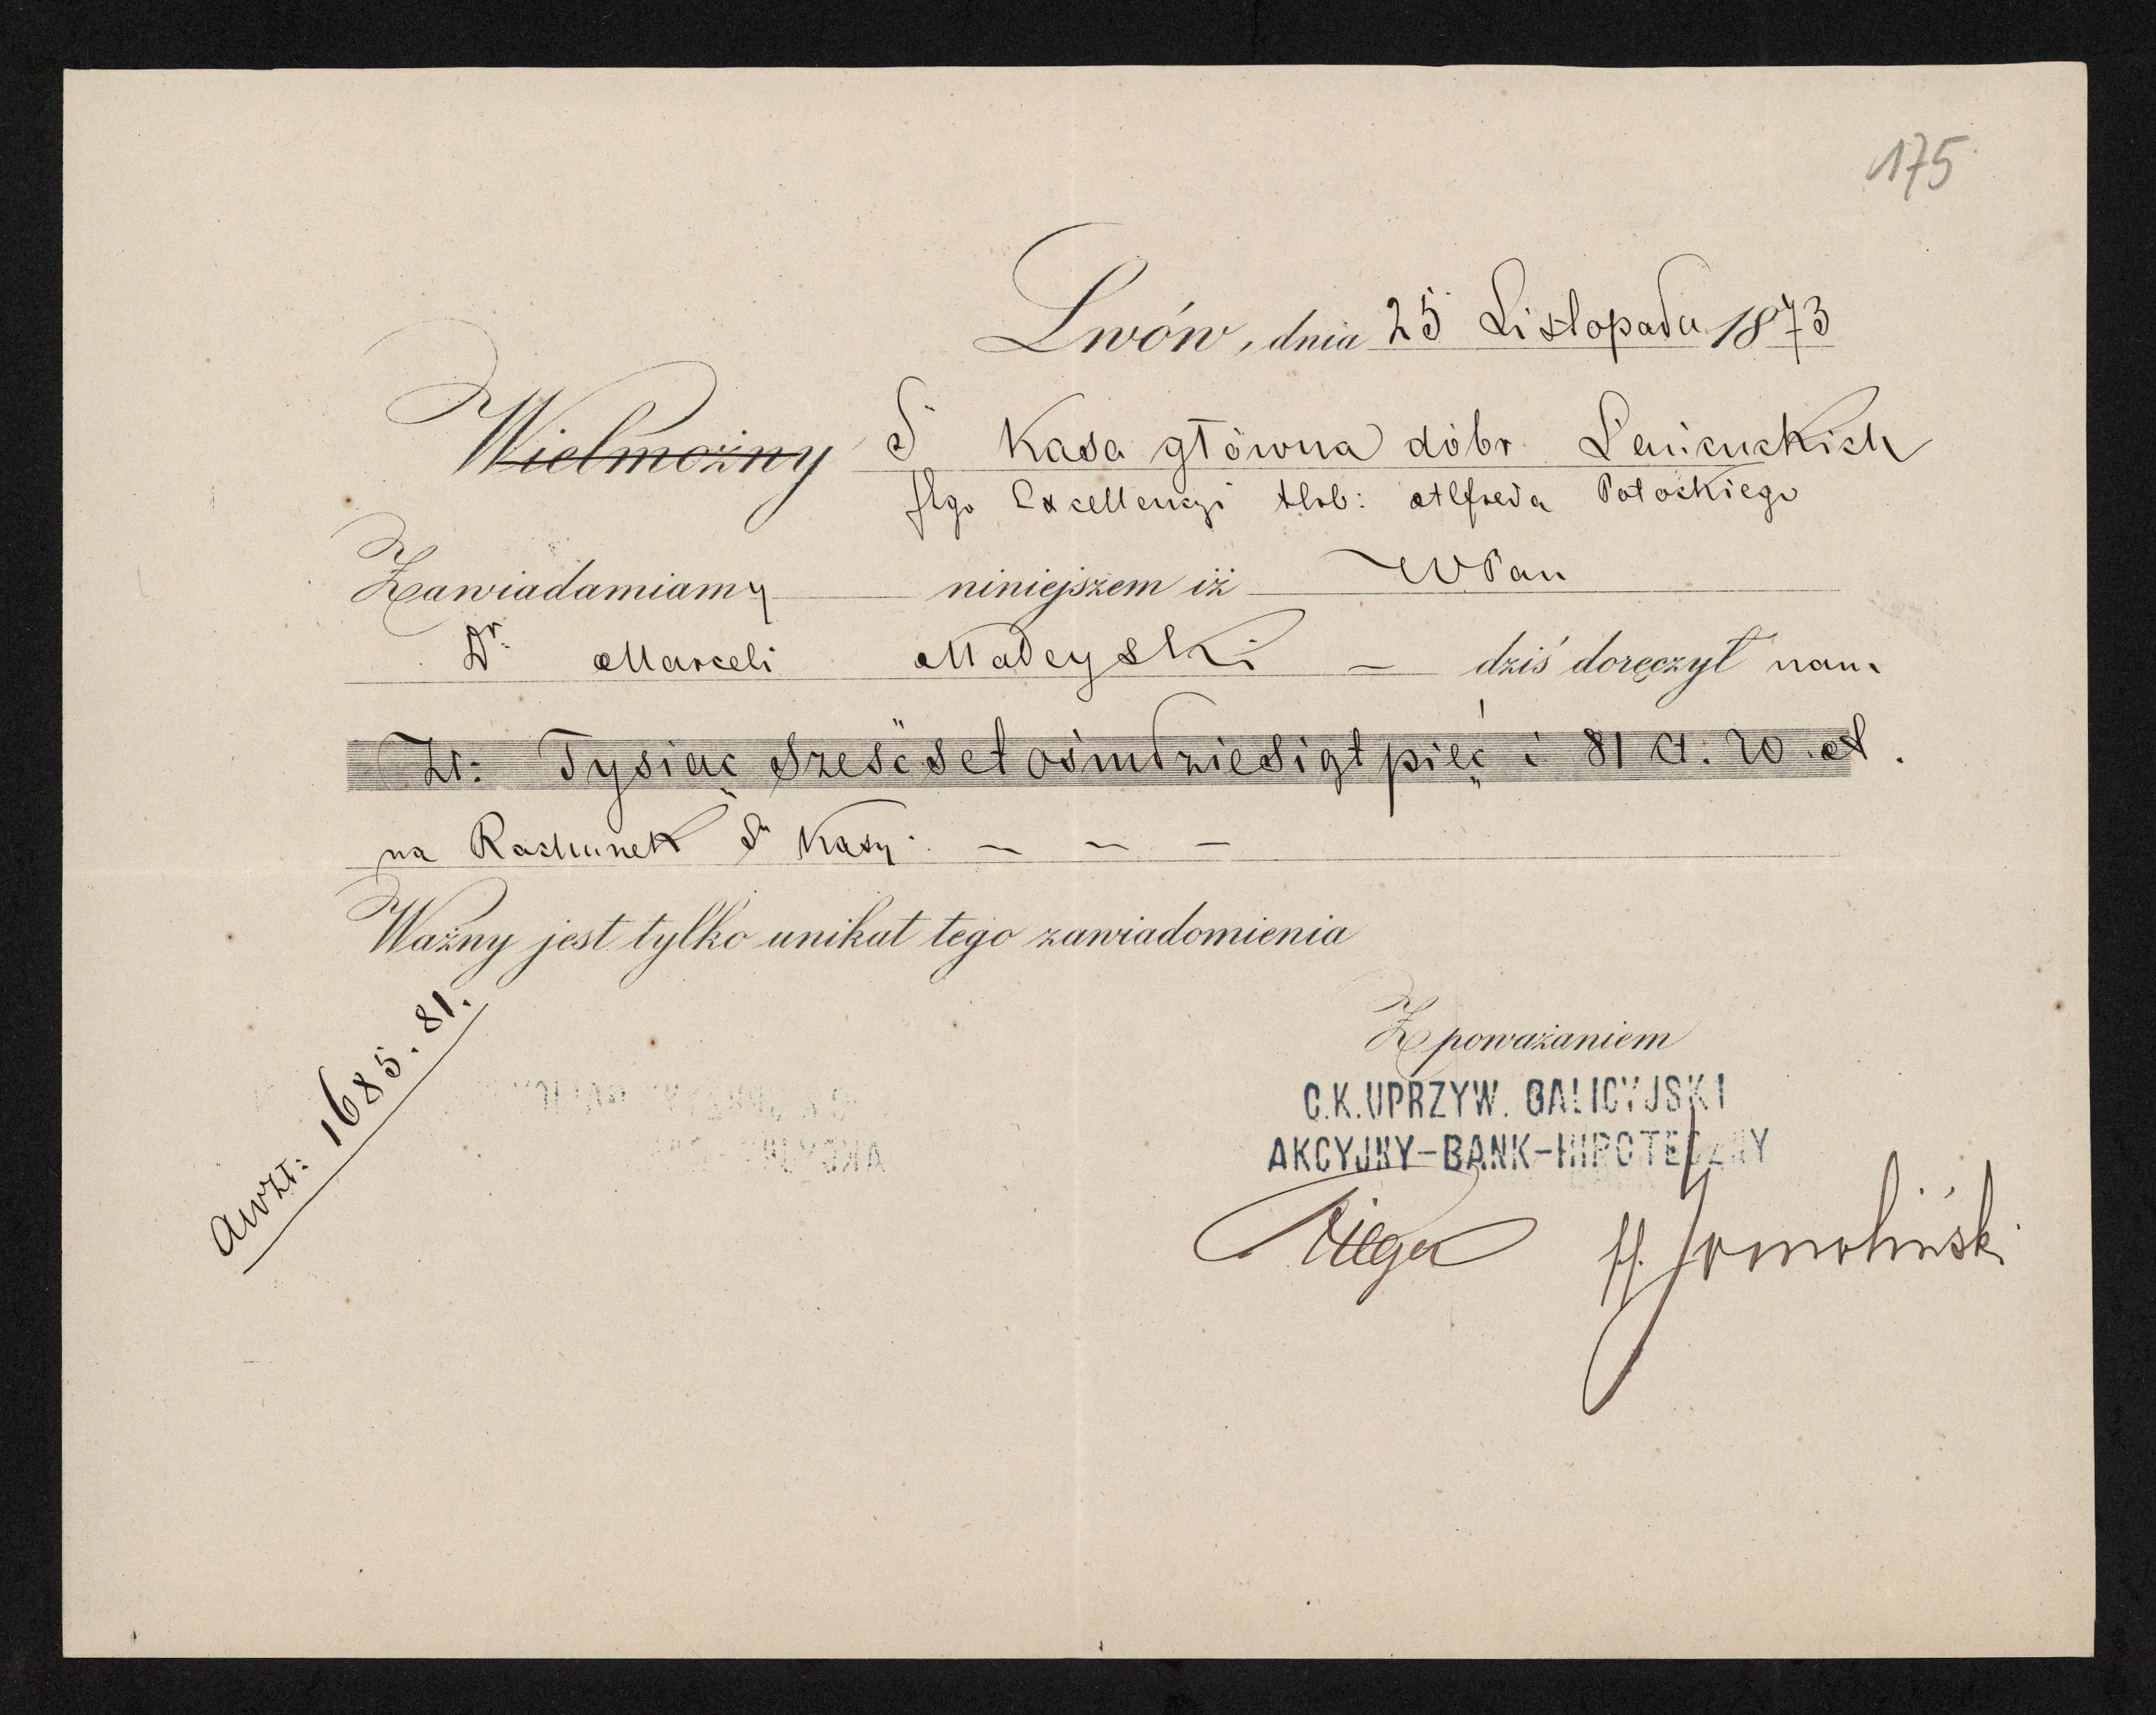 175
Lwów, dnia 25 Listopada 1873
Wielmożny S. Kasa główna dóbr Łańcuckich
Jego Excellencyi Hrb: Alfreda Potockiego
Zawiadamiamy niniejszem iż WPan
Dr. Marceli Madeyski — dziś doręczył nam
Zł: Tysiąc sześćset ośmdziesiąt pięć i 81 ct. w. a.
na Rachunek Sn Kasy. — — —
Ważny jest tylko unikat tego zawiadomienia
Z poważaniem
C.K. UPRZYW. GALICYJSKI
AKCYJNY-BANK-HIPOTECZNY
awzł: 1685.81.